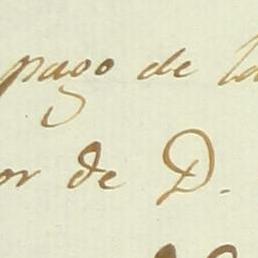 pago de la
or de D.